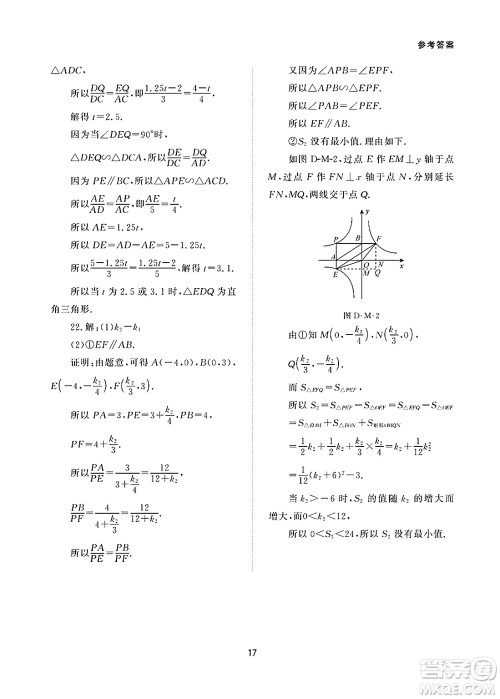 参考答案
△ADC,
所以DQ/DC=EQ/AC,即(1.25t-2)/3=t/4.
解得t=2.5.
因为当∠DEQ=90°时,
△DEQ∽△DCA,所以DE/DC=AD/AC.
因为PE∥BC,所以△APE∽△ACD.
所以AE/AD=AP/AC,即AE/5=t/4.
所以AE=1.25t,
所以(5-1.25t)/3=5/4,解得t=3.1.
所以当t为2.5或3.1时,△EDQ为直
角三角形.
22.解:(1)k₂-k₁
(2)①EF∥AB.
证明:由题意,可得A(-4,0),B(0,3),
E(-4,-k₂/4),F(k₂/3,3).
所以PA=3,PE=3+k₂/4,PB=4,
PF=4+k₂/3.
所以PA/PE=3/(3+k₂/4)=12/(12+k₂),
PB/PF=4/(4+k₂/3)=12/(12+k₂).
所以PA/PE=PB/PF.
又因为∠APB=∠EPF,
所以△APB∽△EPF.
所以∠PAB=∠PEF.
所以EF∥AB.
②S₂没有最小值.理由如下:
如图D-M-2,过点E作EM⊥y轴于点
M,过点F作FN⊥x轴于点N,分别延长
FN,MQ,两线交于点Q.
y
P B F
A O N x
E M Q
图D-M-2
由①知M(0,-k₂/4),N(k₂/3,0),
Q(k₂/3,-k₂/4).
而S△EFQ=S△PEF,
所以S₂=S△PEF-S△OEF=S△EFQ-S△OEF
=S△EOM+S△FON+S矩形OMQN
=1/2k₂+1/2k₂+k₂/3×k₂/4=k₂+1/12k₂²
=1/12(k₂+6)²-3.
当k₂>-6时,S₂的值随k₂的增大而
增大,而0<k₂<12,
所以0<S₂<24,所以S₂没有最小值.
17
答案圈